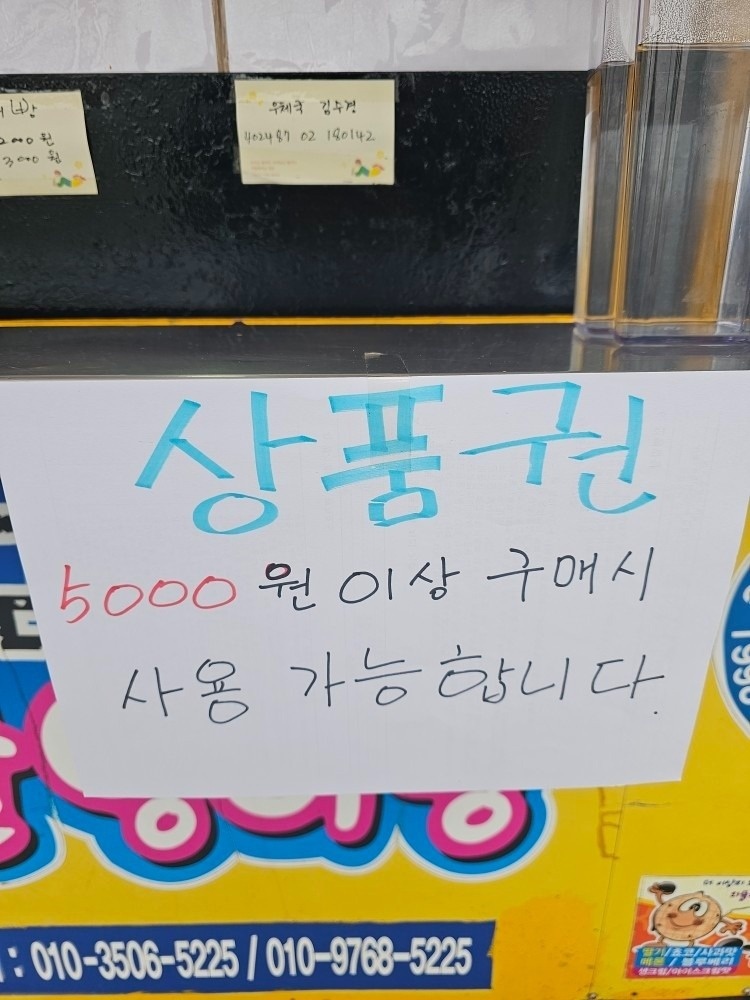 2000원
3000원
우체국 김수경
402487 02 180142
상품권
5000원 이상 구매시
사용 가능합니다.
1990
: 010-3506-5225 / 010-9768-5225
딸기/초코/사과맛
메론 / 블루베리
생크림/아이스크림맛